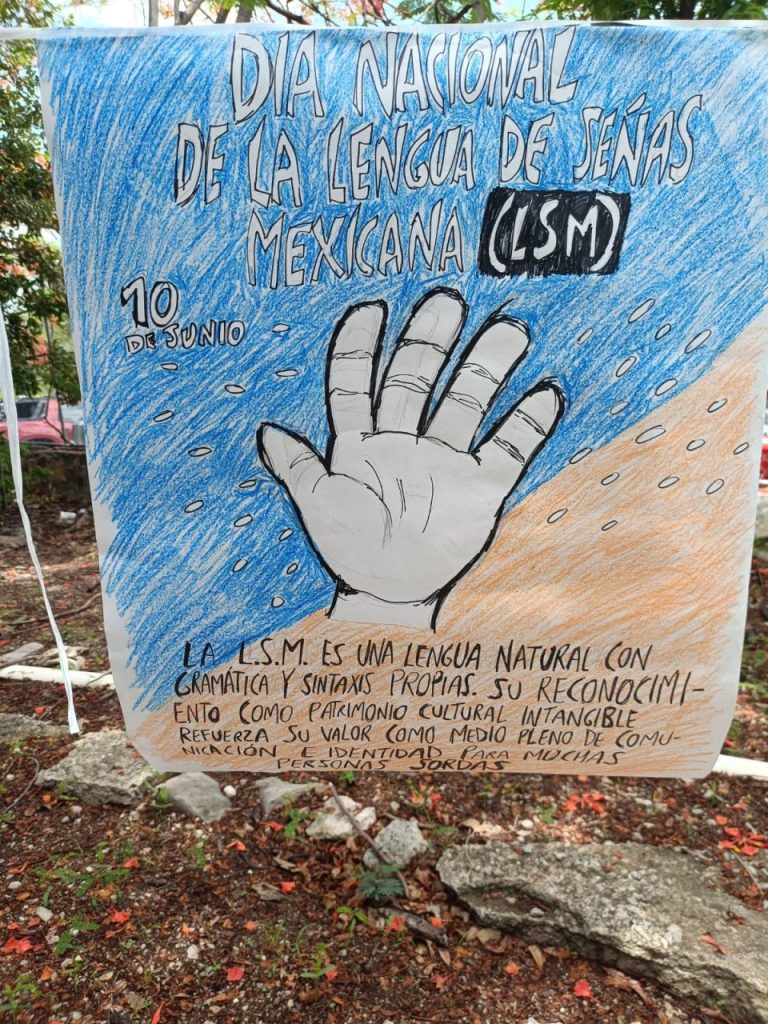 DIA NACIONAL
DE LA LENGUA DE SEÑAS
MEXICANA (LSM)
10
DE JUNIO
LA L.S.M. ES UNA LENGUA NATURAL CON
GRAMÁTICA Y SINTAXIS PROPIAS. SU RECONOCIMI-
ENTO COMO PATRIMONIO CULTURAL INTANGIBLE
REFUERZA SU VALOR COMO MEDIO PLENO DE COMU-
NICACIÓN E IDENTIDAD PARA MUCHAS
PERSONAS SORDAS